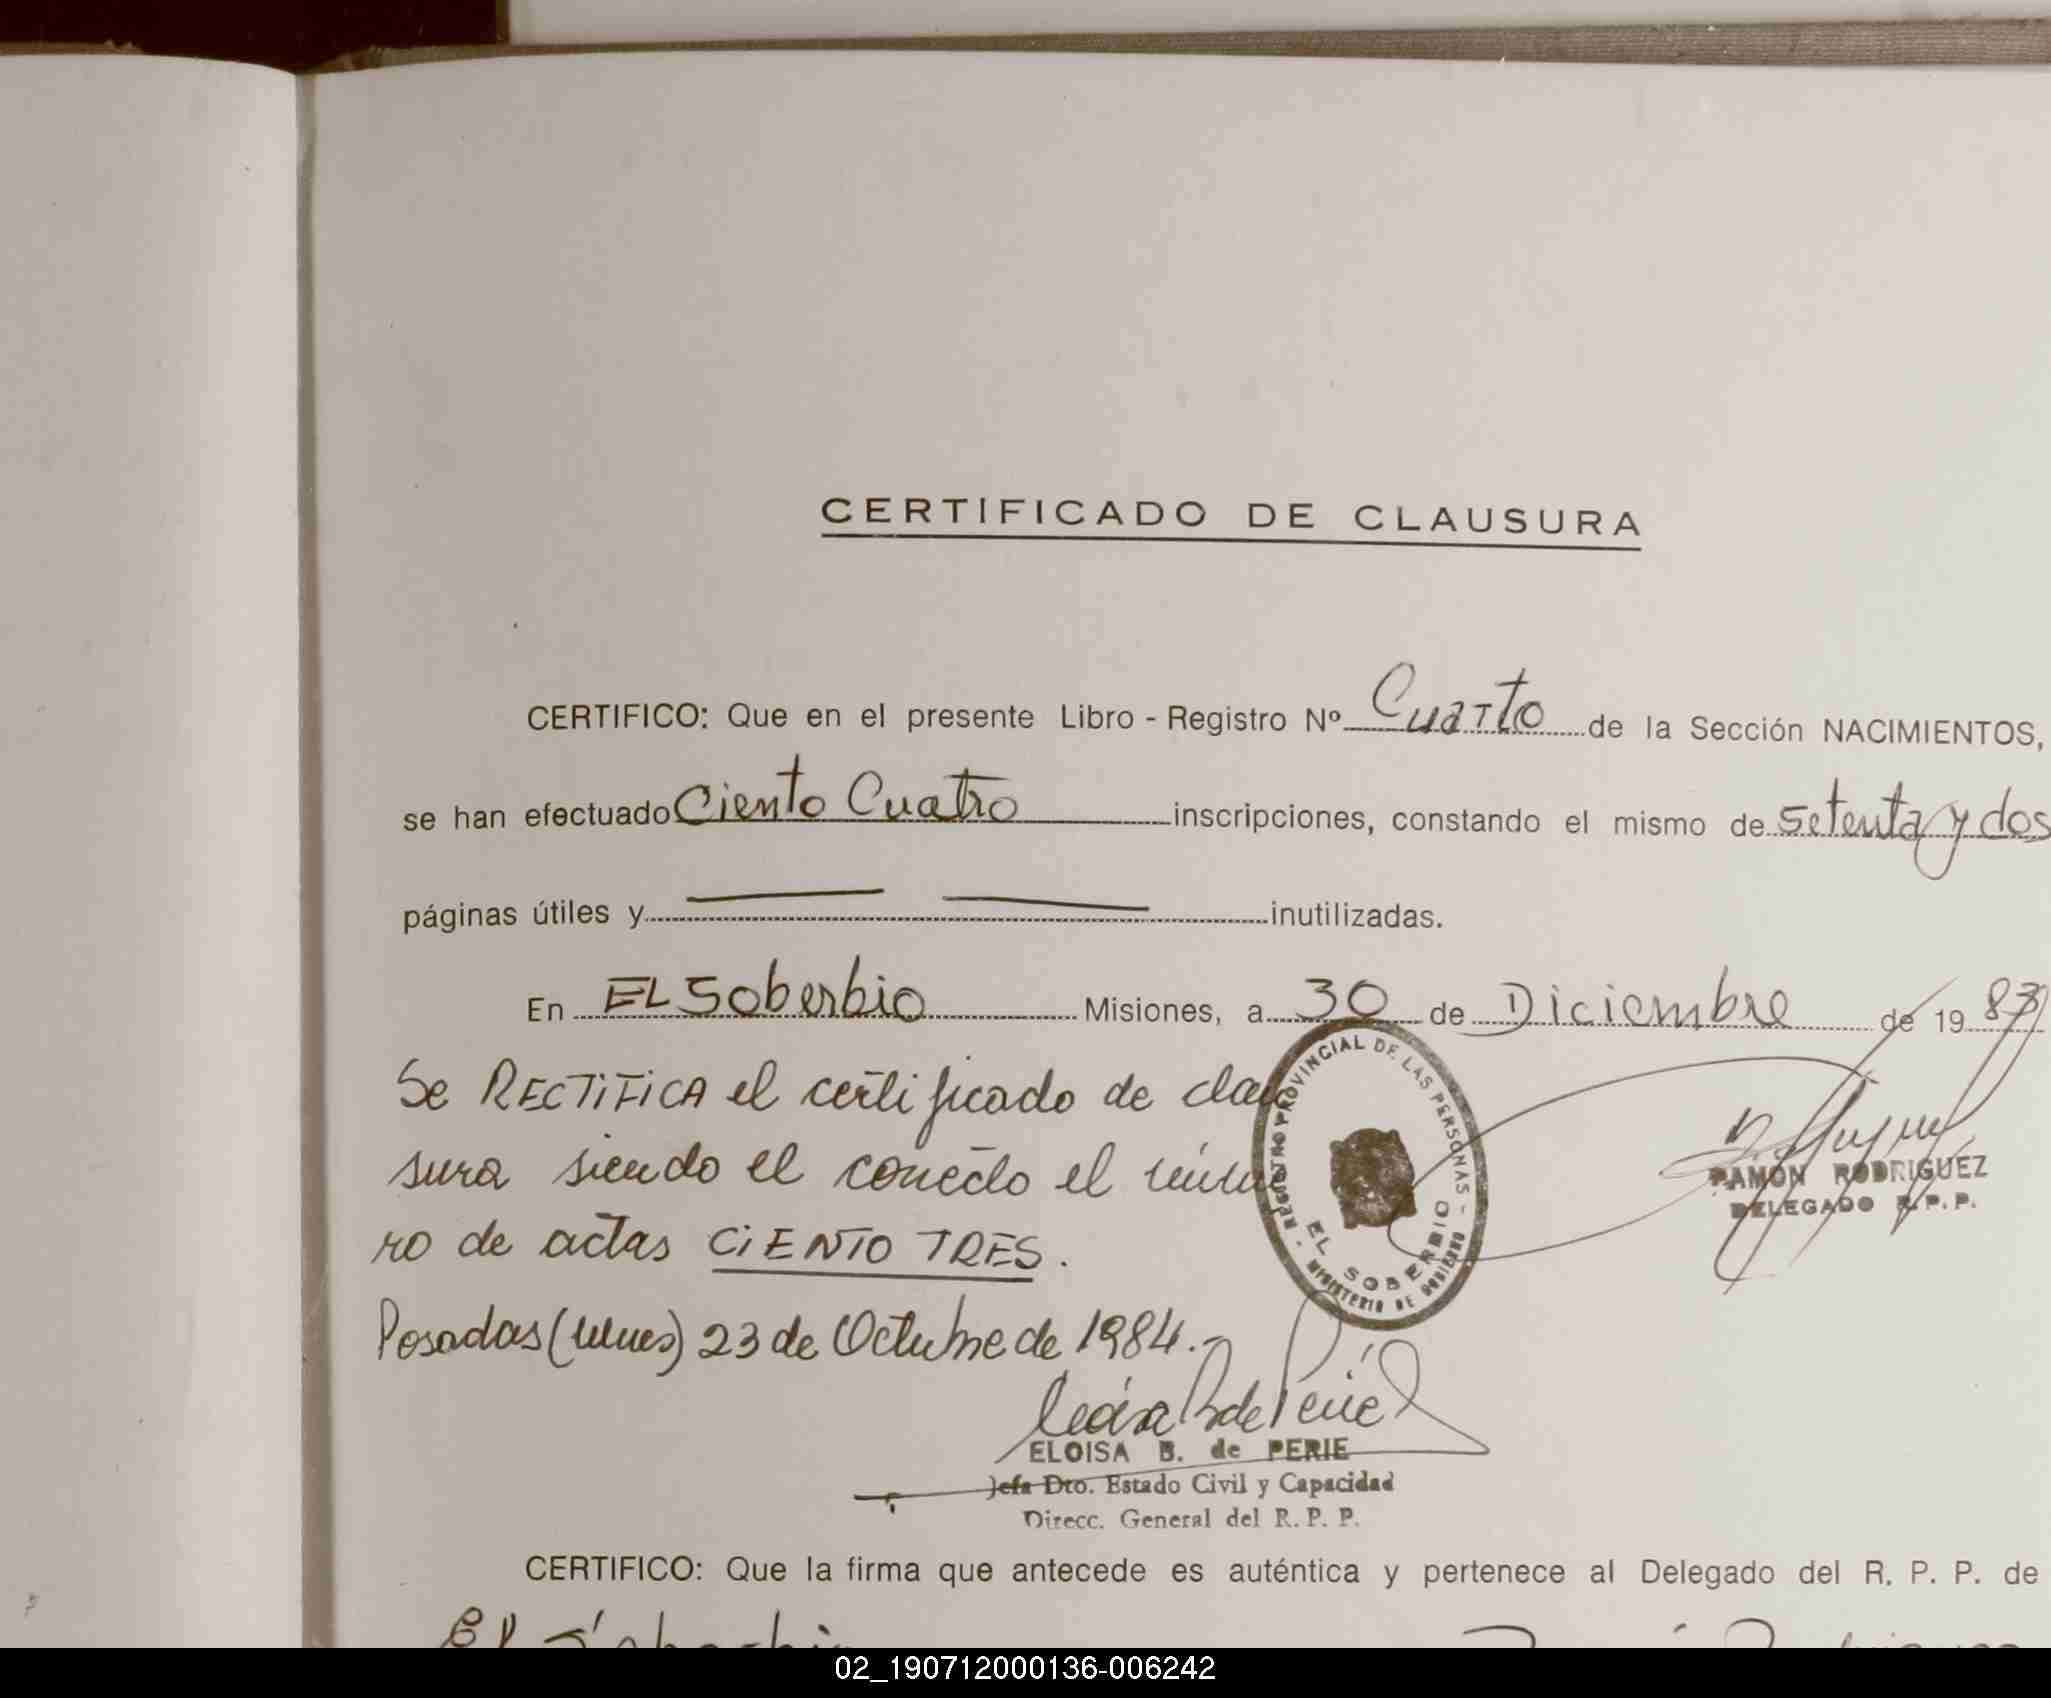 CERTIFICADO DE CLAUSURA
CERTIFICO: Que en el presente Libro - Registro Nº Cuarto de la Sección NACIMIENTOS,
se han efectuado Ciento Cuatro inscripciones, constando el mismo de setenta y dos
páginas útiles y inutilizadas.
En EL Soberbio Misiones, a 30 de Diciembre de 1983
Se RECTIFICA el certificado de clau
sura siendo el correcto el núme
ro de actas CIENTO TRES.
REGISTRO PROVINCIAL DE LAS PERSONAS -
EL SOBERBIO
MINISTERIO DE GOBIERNO
RAMON RODRIGUEZ
DELEGADO R.P.P.
Posadas (Mnes) 23 de Octubre de 1984.-
ELOISA B. de PERIE
Jefa Dto. Estado Civil y Capacidad
Direcc. General del R. P. P.
CERTIFICO: Que la firma que antecede es auténtica y pertenece al Delegado del R. P. P. de
El Soberbio
02_190712000136-006242